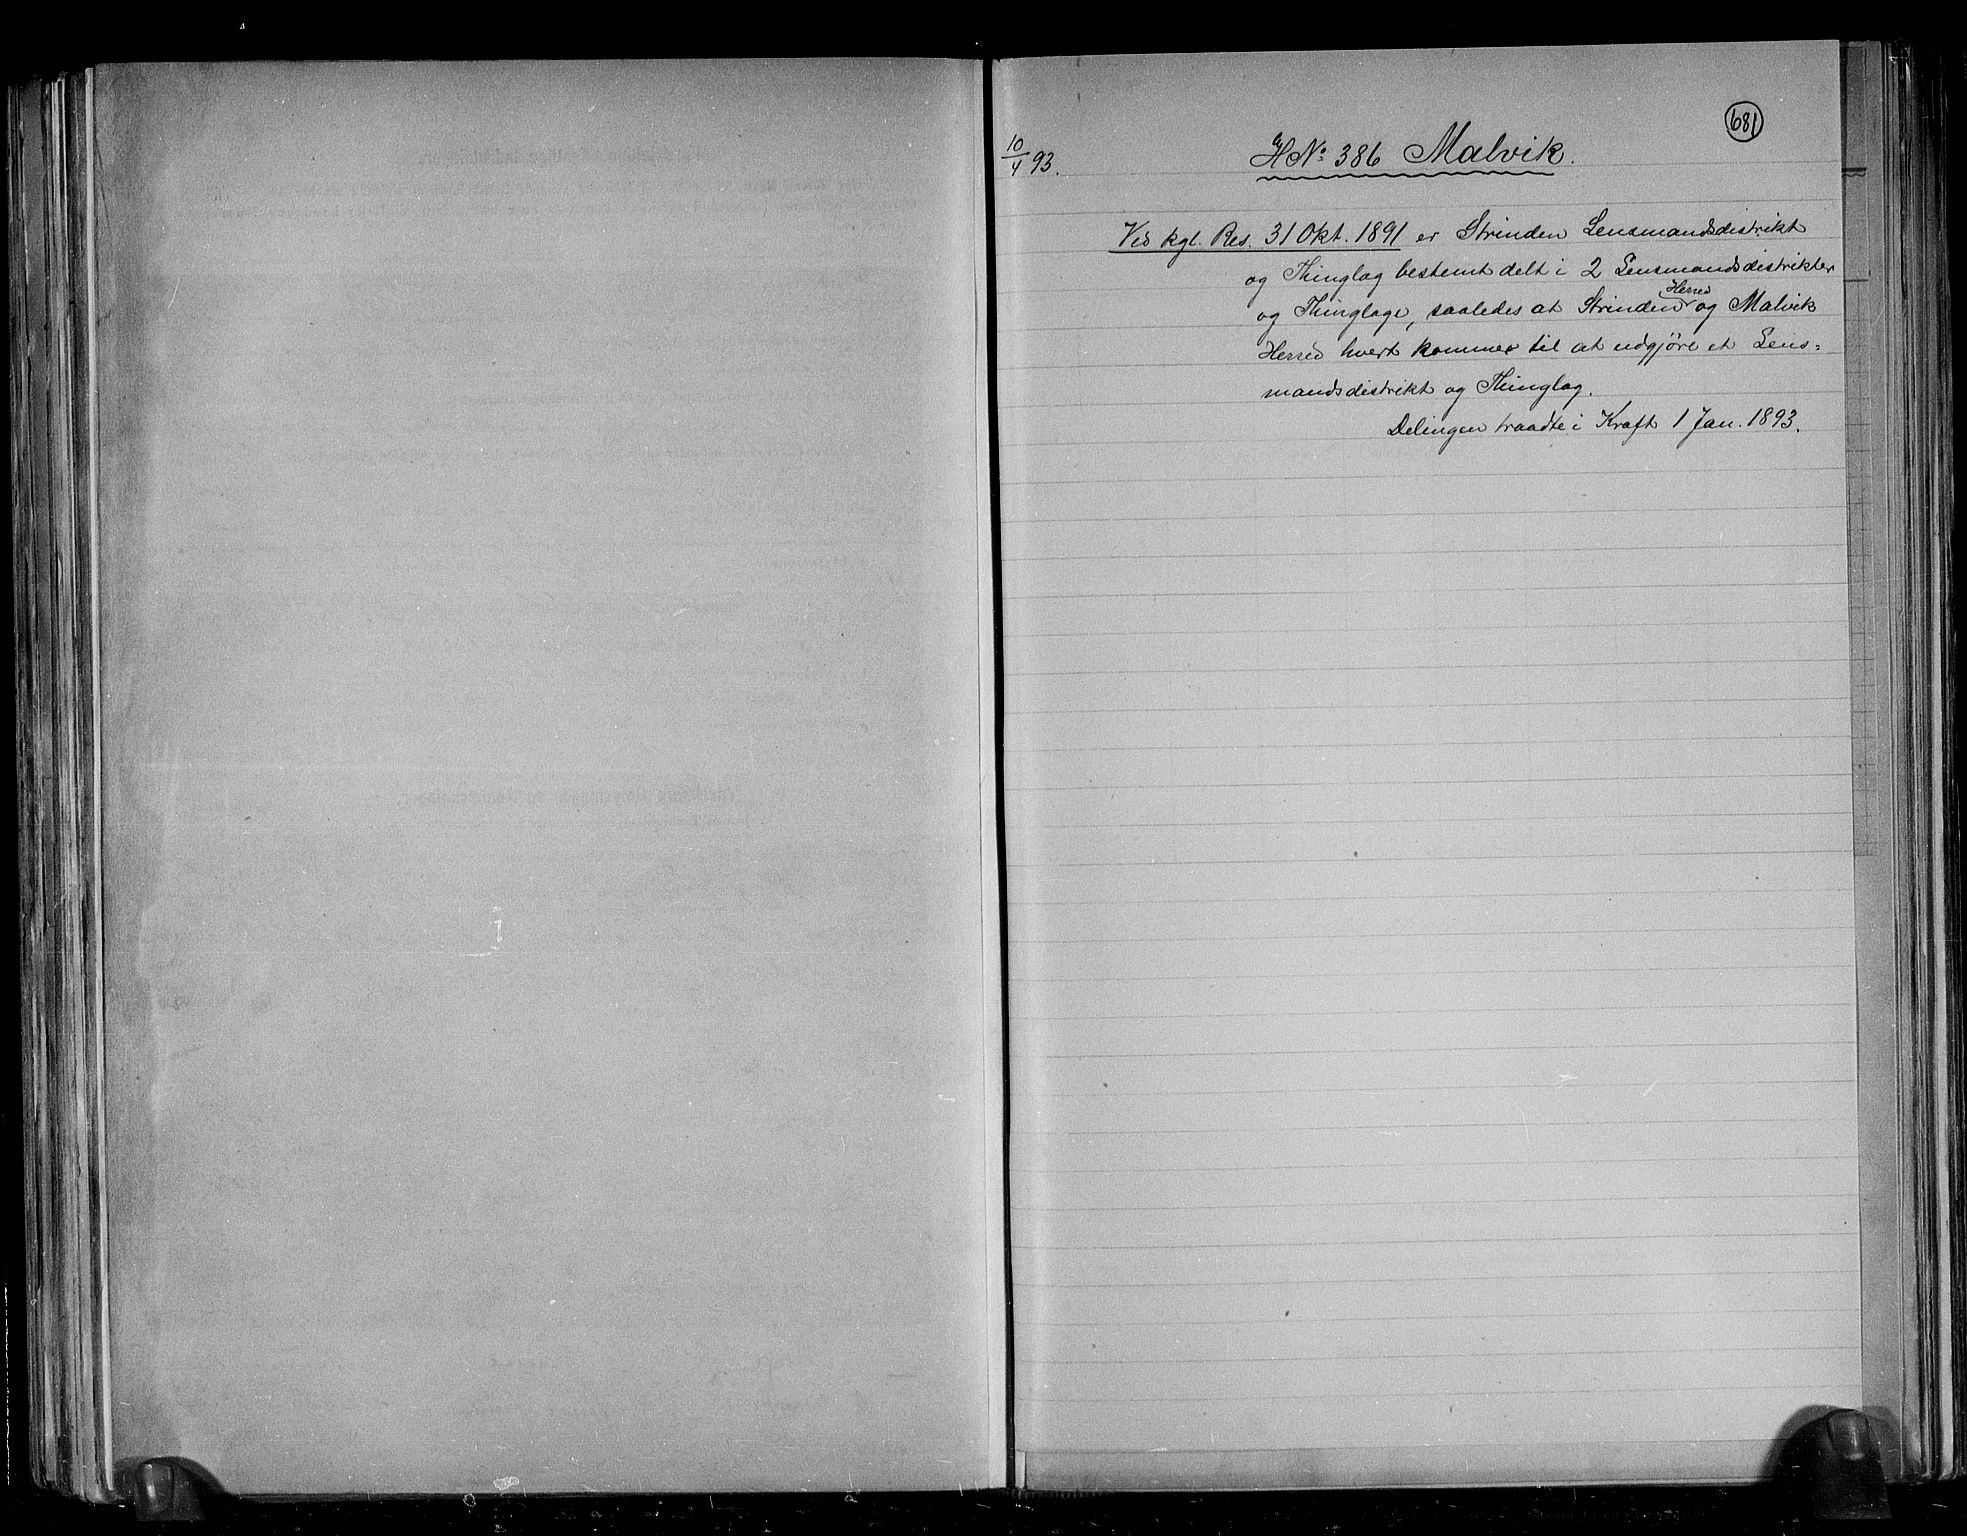 681
10/4 93.
H No 386 Malvik.
Ved kgl. Res. 31 Okt. 1891 er Strinden Lensmandsdistrikt
og Thinglag bestemt delt i 2 Lensmandsdistrikter
og Thinglage, saaledes at Strinden Herred og Malvik
Herred hvert kommer til at udgjøre et Lens=
mandsdistrikt og Thinglag.
Delingen traadte i Kraft 1 Jan. 1893.